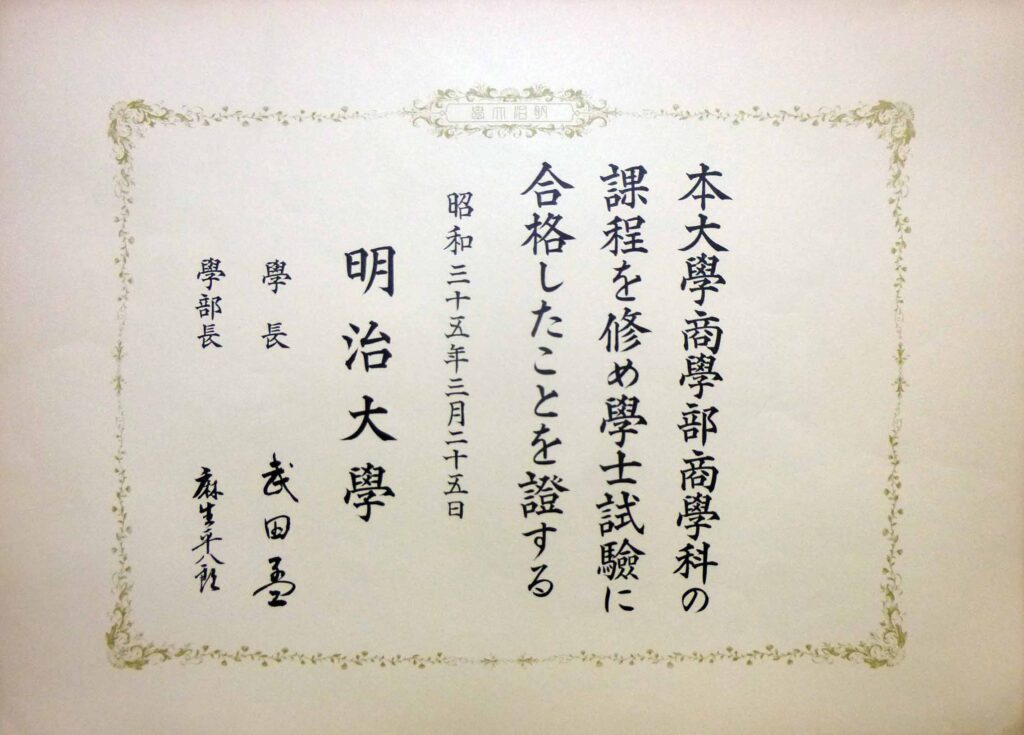 明治大學
本大學商學部商學科の
課程を修め學士試驗に
合格したことを證する
昭和三十五年三月二十五日
明治大學
學長 武田孟
學部長 麻生平八郎